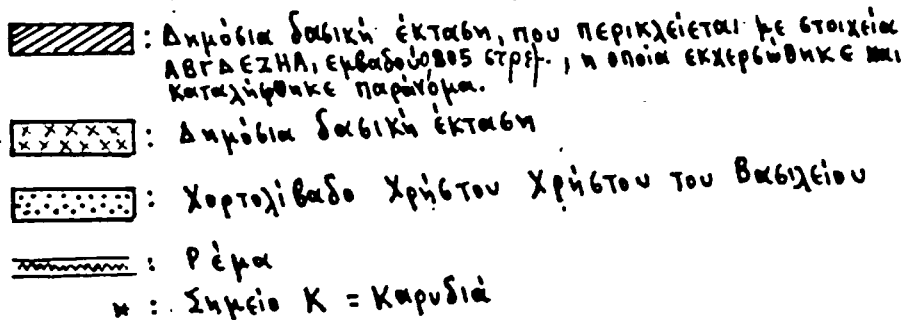 : Δημόσια δασική έκταση, που περικλείεται με στοιχεία
ΑΒΓΔΕΖΗΑ, εμβαδού 0805 στρεμ., η οποία εκχερσώθηκε και
καταλήφθηκε παράνομα.
: Δημόσια δασική έκταση
: Χορτολίβαδο Χρήστου Χρήστου του Βασιλείου
: Ρέμα
* : Σημείο Κ = Καρυδιά